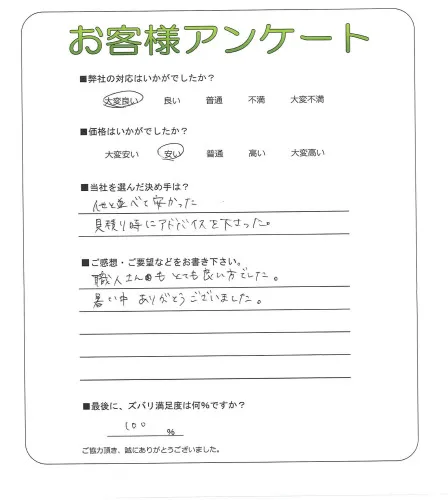 お客様アンケート
■弊社の対応はいかがでしたか?
大変良い 良い 普通 不満 大変不満
■価格はいかがでしたか?
大変安い 安い 普通 高い 大変高い
■当社を選んだ決め手は?
他と並べて安かった
見積り時にアドバイスを下さった。
■ご感想・ご要望などをお書き下さい。
職人さんもとても良い方でした。
暑い中ありがとうございました。
■最後に、ズバリ満足度は何%ですか?
100 %
ご協力頂き、誠にありがとうございました。